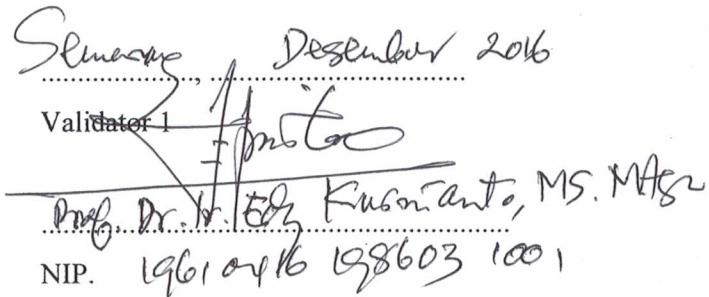 Semarang, Desember 2016
Validator 1
Prof. Dr. Ir. Edy Kusmianto, MS. MAgr
NIP. 19610416 198603 1001